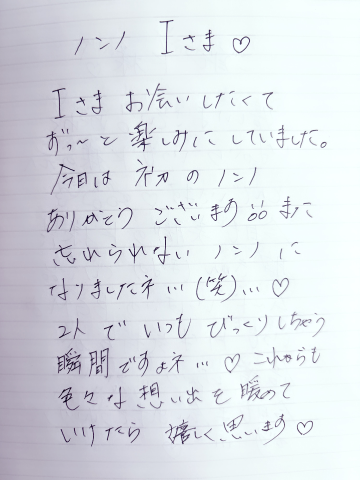 ノンノ Iさま♡
Iさま お会いしたくて
おっ〜と楽しみにしていました。
今日は ネカ の ノンノ
ありがとう ございます また
忘れられない ノンノ に
なりましたネ…(笑)…♡
2人で いつも びっくりしちゃう
瞬間ですよネ…♡ これからも
色々な 想い出を 暖めて
いけたら 嬉しく 思います♡